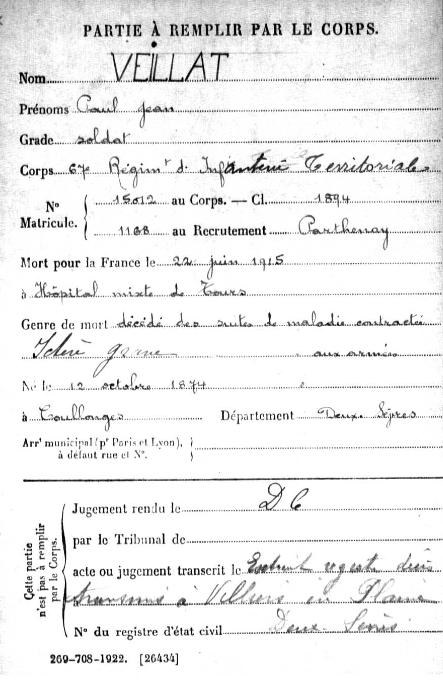 PARTIE À REMPLIR PAR LE CORPS.
Nom VEILLAT
Prénoms Paul Jean
Grade soldat
Corps 67 Régimt d'Infanterie Territoriale
No Matricule. { 15012 au Corps. — Cl. 1894
1168 au Recrutement Parthenay
Mort pour la France le 22 juin 1915
à Hôpital mixte de Tours
Genre de mort décédé des suites de maladie contractée
Ictère grave aux armées
Né le 12 octobre 1874
à Coullonges Département Deux-Sèvres
Arrt municipal (pr Paris et Lyon), à défaut rue et No.
Cette partie n'est pas à remplir par le Corps.
Jugement rendu le D C
par le Tribunal de
acte ou jugement transcrit le Extrait registre décès
transmis à Villiers en Plaine
Deux Sèvres
No du registre d'état civil
269-708-1922. [26434]